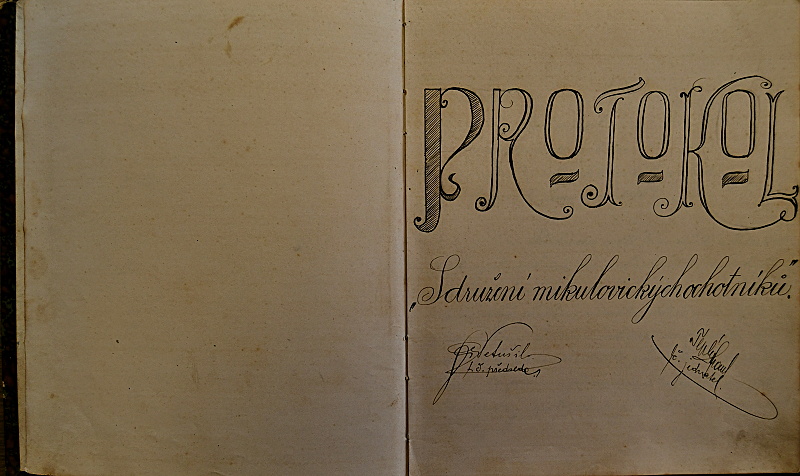 PROTOKOL
„Sdružení mikulovických ochotníků.”
Vetušil
t. č. předseda
t. č. jednatel.